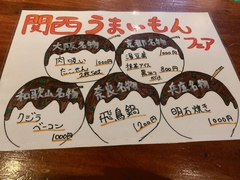 関西うまいもん
フェア
大阪名物
肉吸い 1000円
たこせん
2枚set
京都名物
湯豆腐 1000円
抹茶アイス 800円
和歌山名物
クジラ
ベーコン
1000円
奈良名物
飛鳥鍋
1200円
兵庫名物
明石焼き
1000円